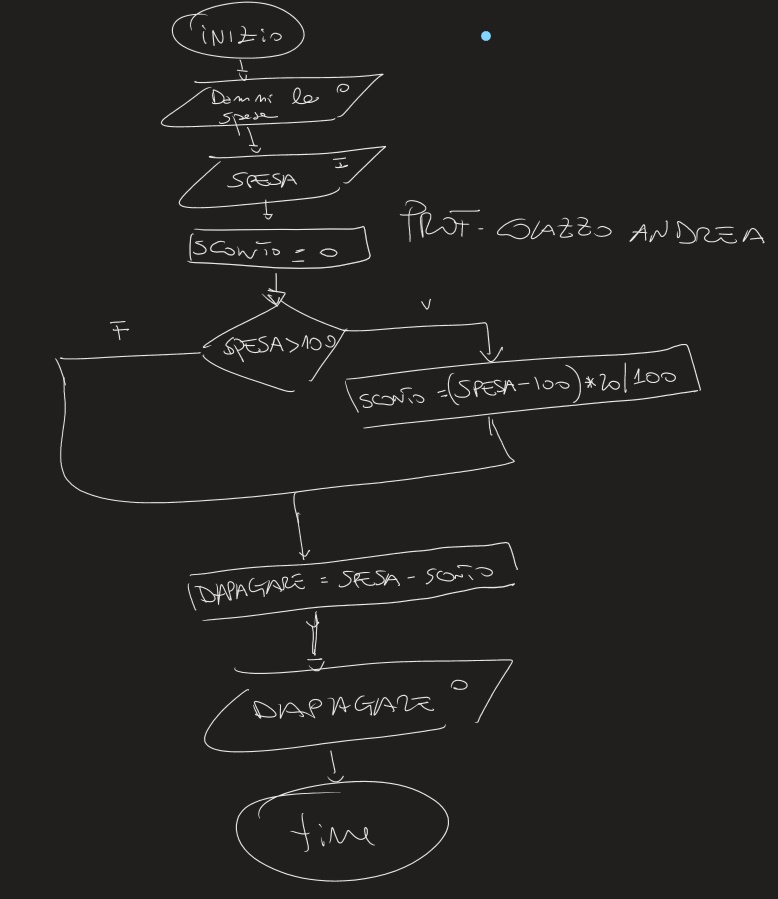 INIZIO
Dammi la O
spesa
SPESA I
SCONTO = 0
PROF. COLAZZO ANDREA
F
V
SPESA>100
SCONTO =(SPESA-100)*20/100
DAPAGARE = SPESA - SCONTO
DAPAGARE O
fine